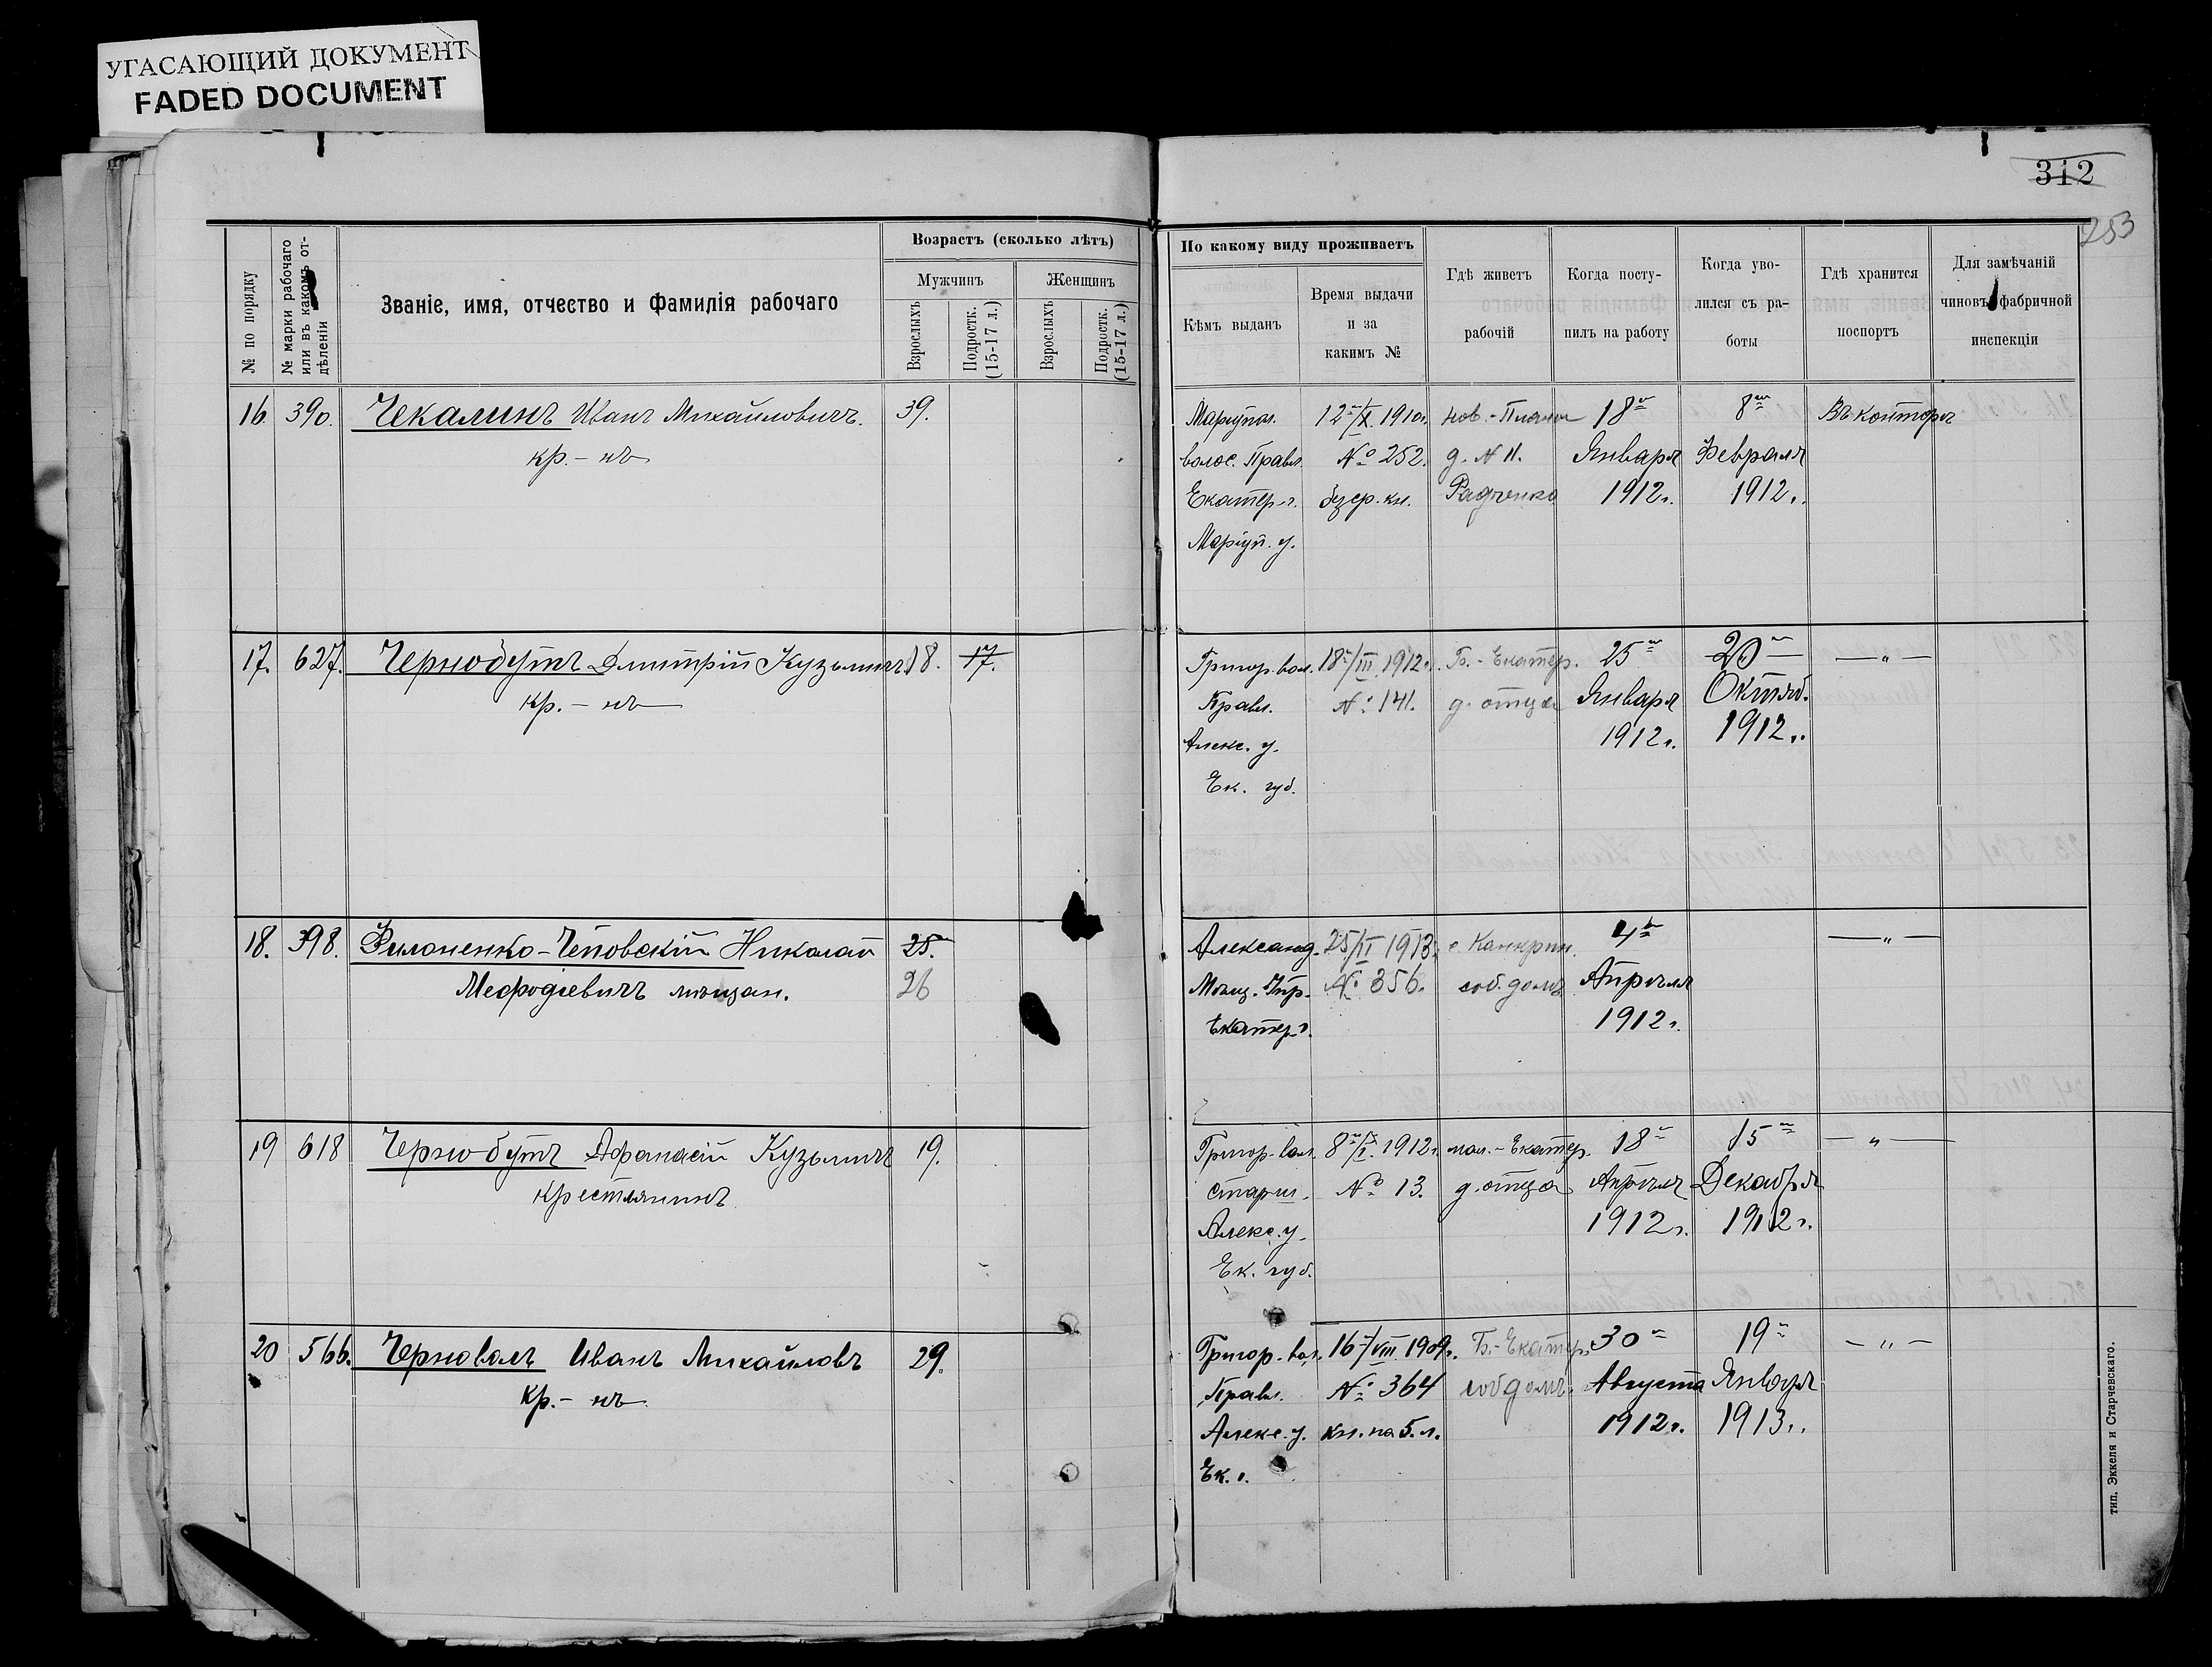 УГАСАЮЩИЙ ДОКУМЕНТ
FADED DOCUMENT
312
253
№ по порядку
№ марки рабочаго или въ какомъ отдѣленіи
Званіе, имя, отчество и фамилія рабочаго
Возрастъ (сколько лѣтъ)
Мужчинъ
Женщинъ
Взрослыхъ
Подростк. (15-17 л.)
Взрослыхъ
Подростк. (15-17 л.)
По какому виду проживаетъ
Кѣмъ выданъ
Время выдачи и за какимъ №
Гдѣ живетъ рабочій
Когда поступилъ на работу
Когда уволился съ работы
Гдѣ хранится поспортъ
Для замѣчаній чиновъ фабричной инспекціи
16. 390. Чекалинъ Иванъ Михайловичъ. 39. Маріупол. 12/X. 1910г. нов.- 18 8 Въ конторѣ
кр. - нъ волос. Правл. № 252. д. N 11. Января Февраля
Екатер. г. безср. кн. Радченко 1912г. 1912г.
Маріуп. у.
17. 627. Чернобутъ Дмитрій Кузьмичъ 18. 17. Григор. вол. 18/III 1912г. Б.-Екатер. 25 20 — „ —
кр. - нъ Правл. № 141. д. отца Января Октяб.
Алекс. у. 1912г. 1912г.
Ек. губ.
18. 398. Филоненко-Чеповскій Николай 25. Александ. 25/II 1913г. с. Канкрин. 4 — „ —
Мефодіевичъ мѣщан. 26 Мѣщ. Упр. № 356. соб. домъ Апрѣля
Екатер. г. 1912г.
19 618 Чернобутъ Афанасій Кузьмичъ 19. Григор. вол. 8/X. 1912г. мал.-Екатер. 18 15 — „ —
крестьянинъ старш. № 13. д. отца Апрѣля Декабря
Алекс. у. 1912г. 1912г.
Ек. губ.
20 566. Черноволъ Иванъ Михайловъ 29. Григор. вол. 16/VIII 1909г. Б.-Екатер. 30 19 — „ —
кр. - нъ Правл. № 364 соб домъ. Августа Января
Алекс. у. кн. на 5. л. 1912г. 1913г.
Ек. г.
тип. Эккеля и Старчевскаго.